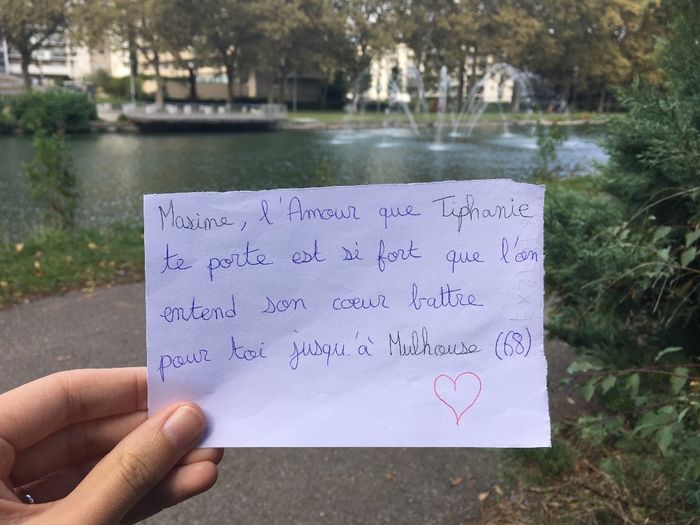 Maxime, l'Amour que Tiphanie
te porte est si fort que l'on
entend son cœur battre
pour toi jusqu'à Mulhouse (68)